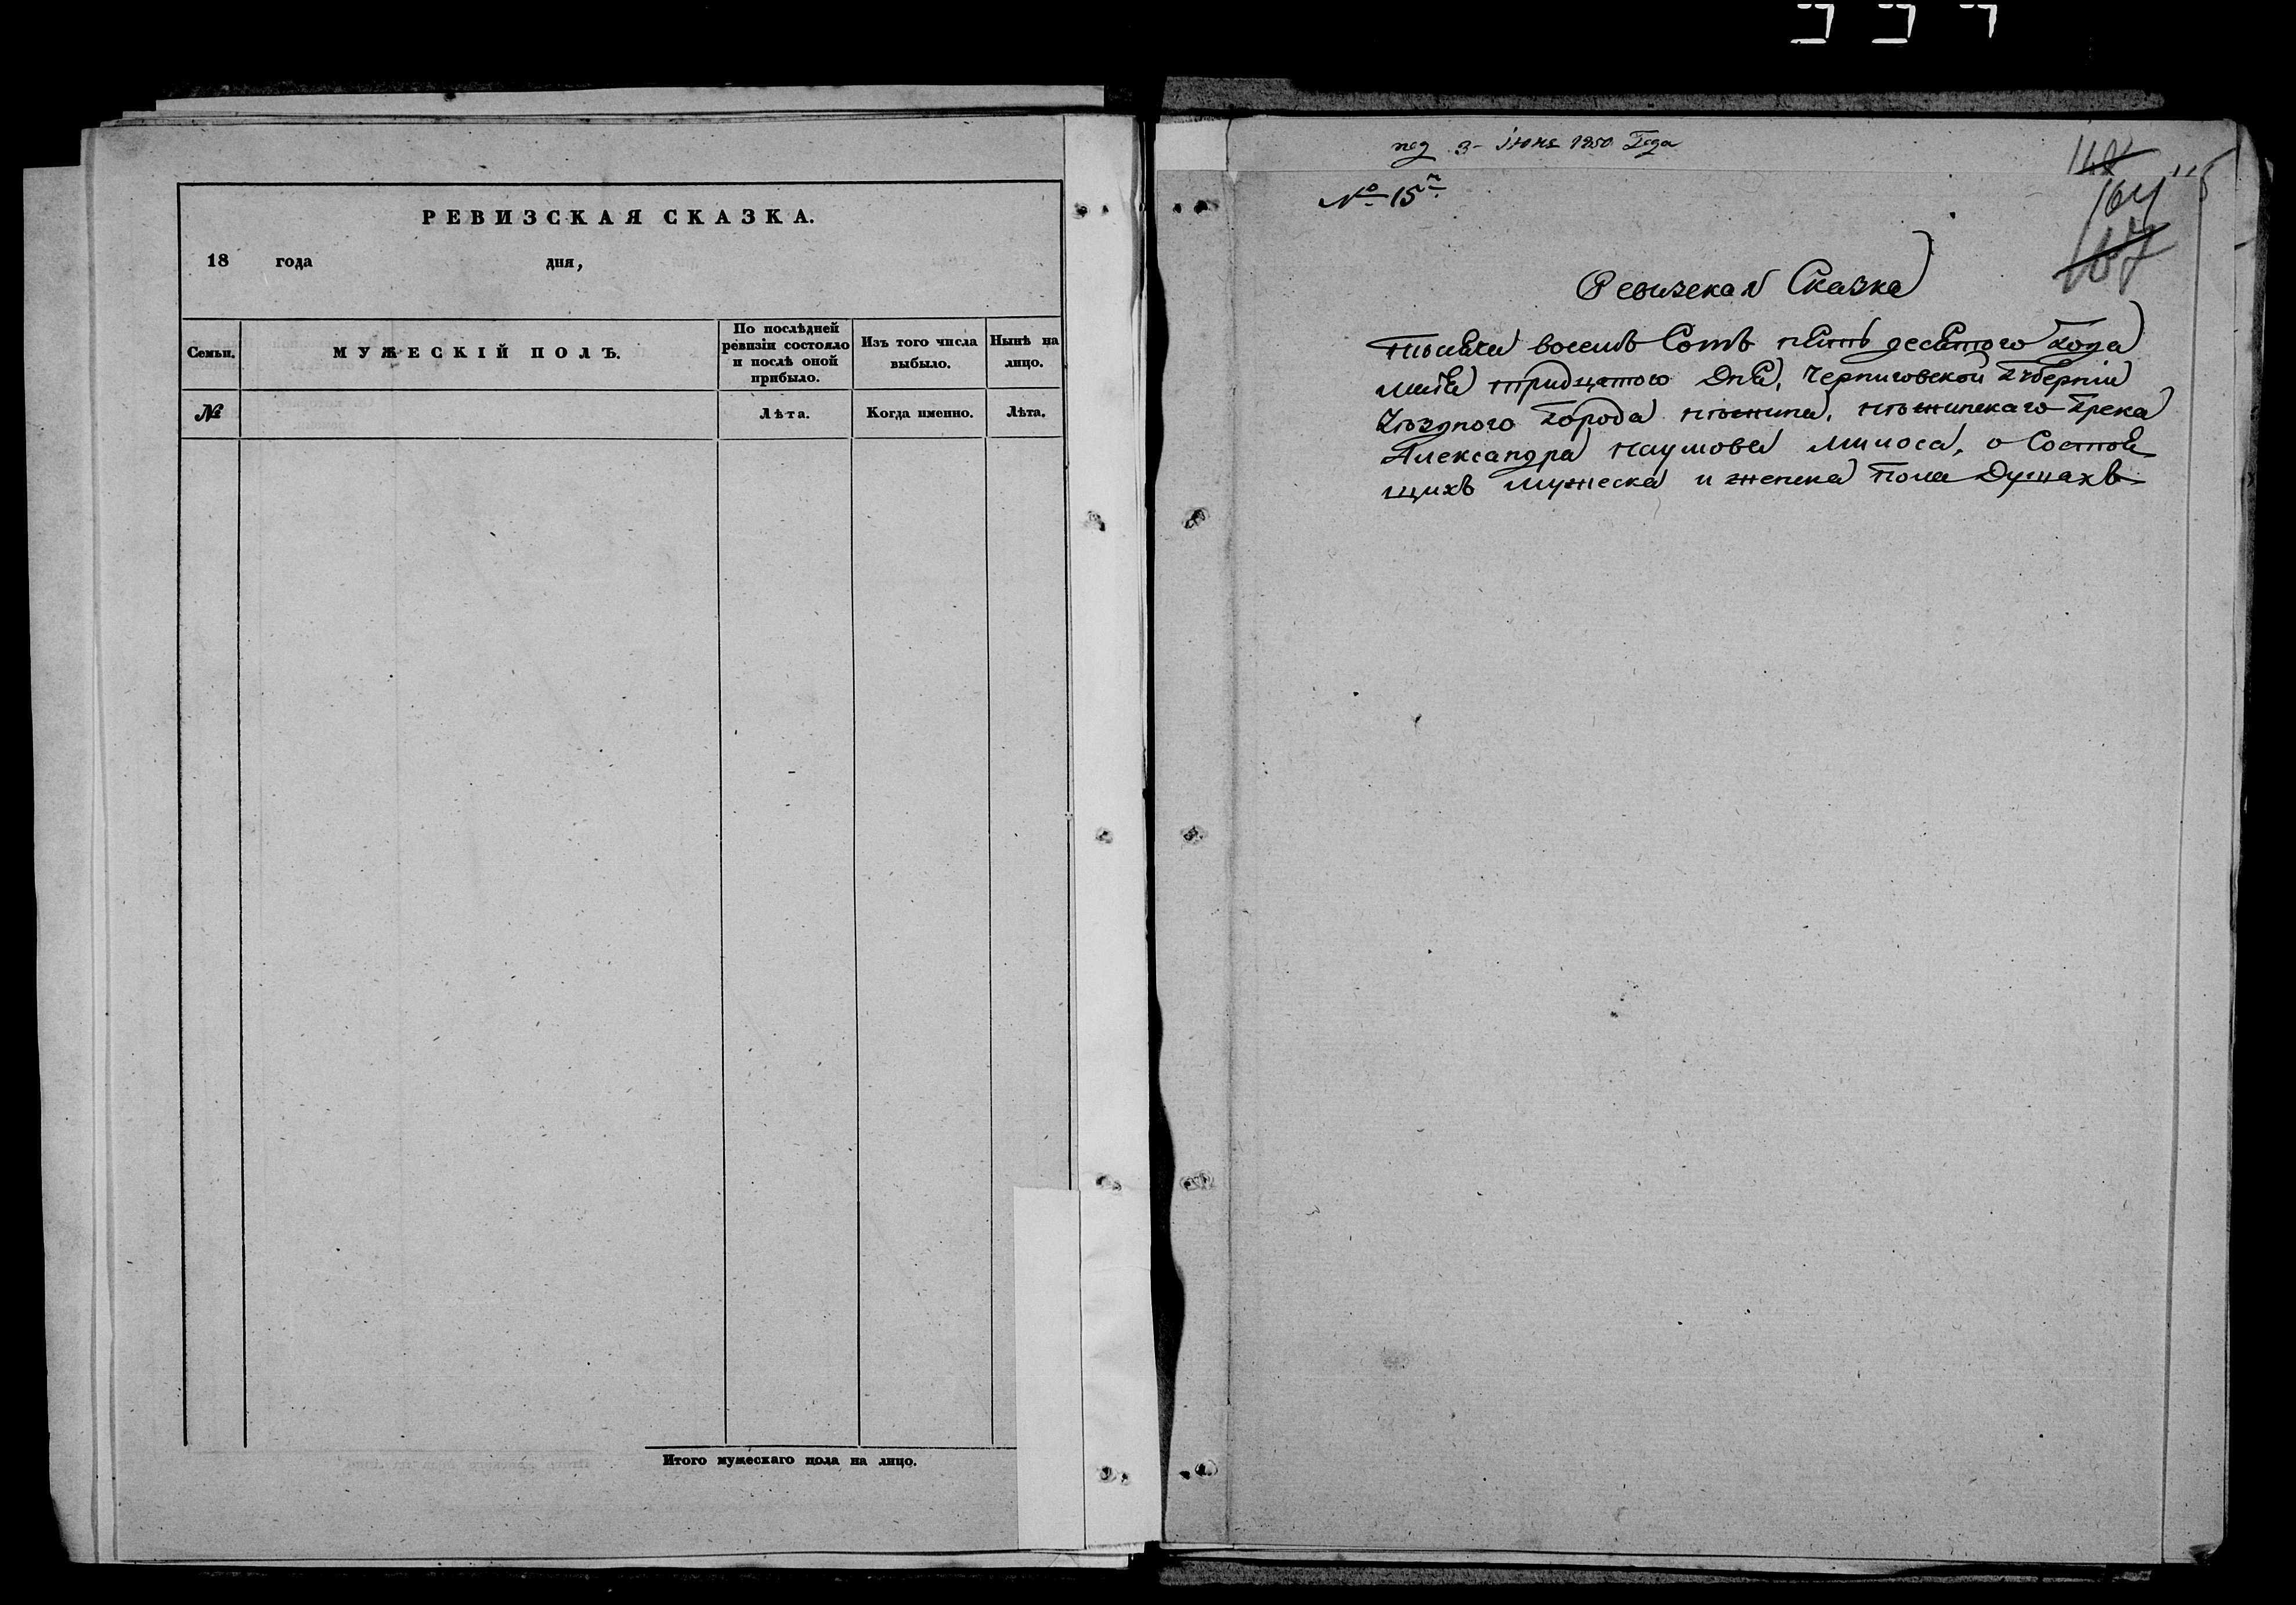 РЕВИЗСКАЯ СКАЗКА.
18 года дня,
Семьи. МУЖЕСКІЙ ПОЛЪ. По послѣдней ревизіи состояло и послѣ оной прибыло. Изъ того числа выбыло. Нынѣ на лицо.
№ Лѣта. Когда именно. Лѣта.
Итого мужескаго пола на лицо.
под 3 Іюня 1850 Года
№ 15й
164
115
Ревизская Сказка
тысяча восемь Сотъ пять десятого Года
Маія тридцятого Дня, Черниговской Губерніи
Уѣздного Города Нѣжина, Нѣжинскаго Грека
Александра Наумова Милоса, о Состоя
щихъ мужеска и женска пола Душахъ